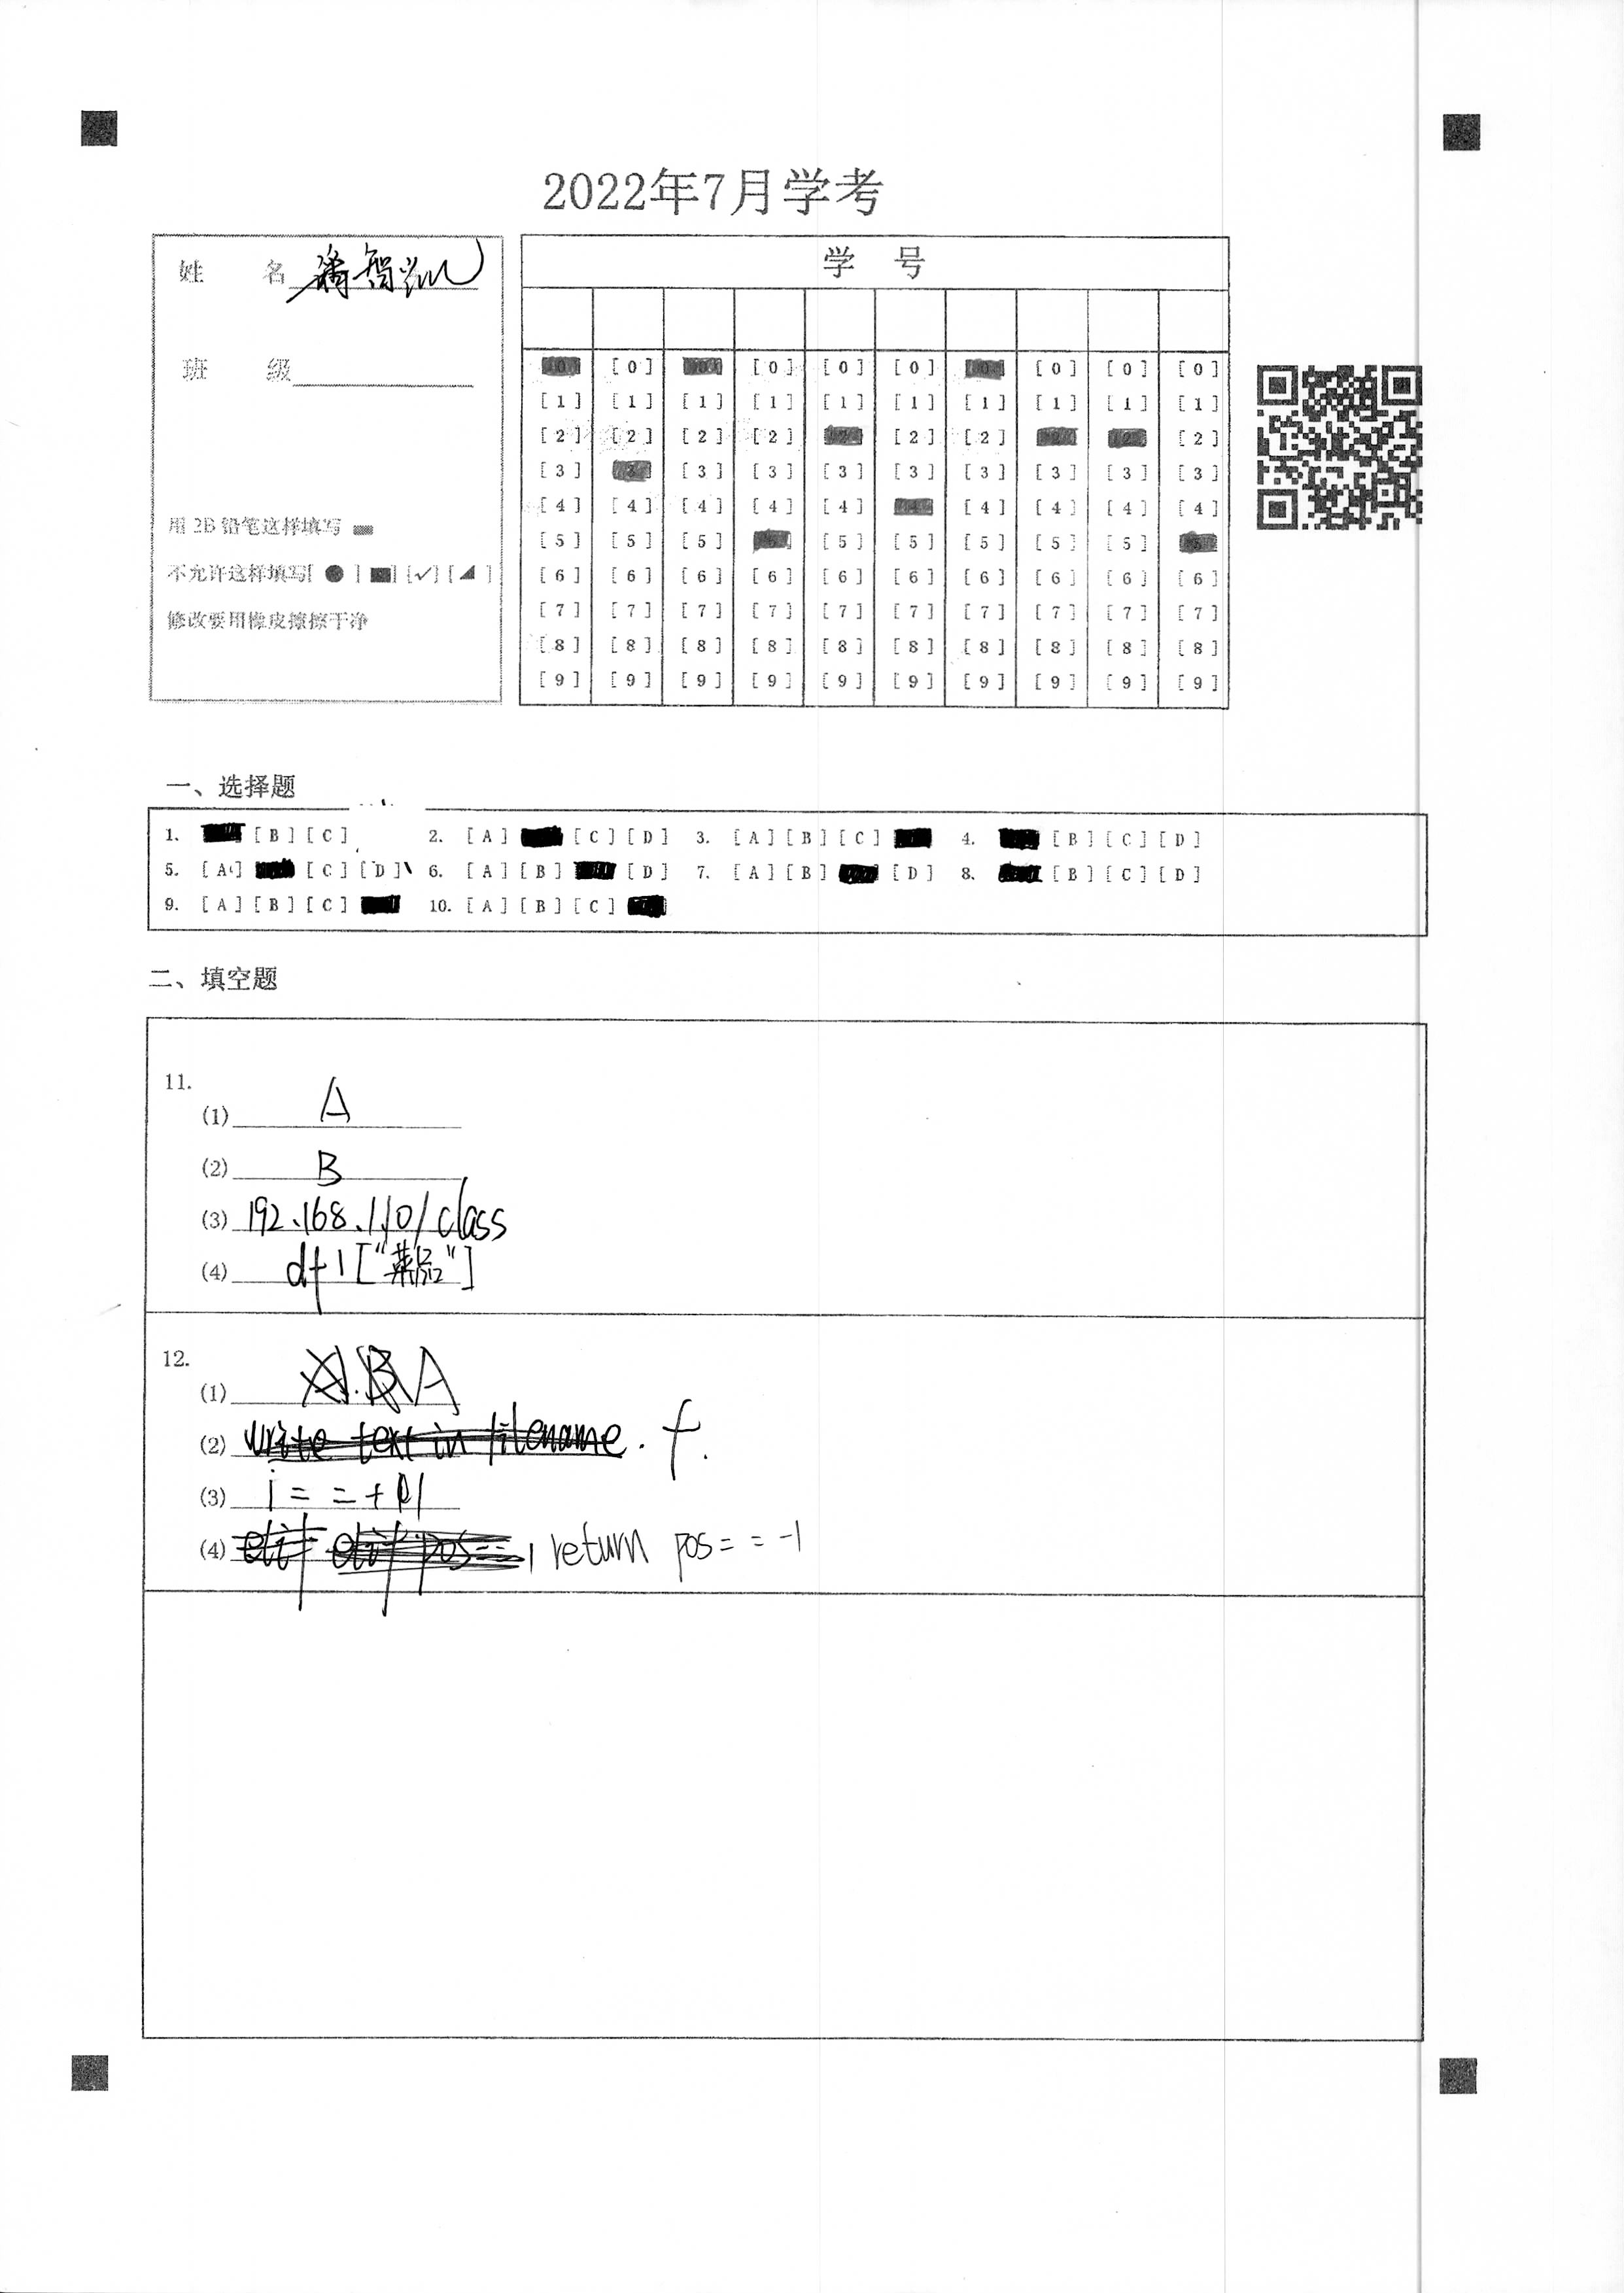 2022年7月学考
姓 名 潘智凯
班 级
用2B铅笔这样填写
不允许这样填写[ ● ] [■] [✓] [◢ ]
修改要用橡皮擦擦干净
学 号
[0] [0] [0] [0] [0] [0] [0]
[1] [1] [1] [1] [1] [1] [1] [1] [1] [1]
[2] [2] [2] [2] [2] [2] [2] [2] [2] [2]
[3] [3] [3] [3] [3] [3] [3] [3] [3] [3]
[4] [4] [4] [4] [4] [4] [4] [4] [4]
[5] [5] [5] [5] [5] [5] [5] [5]
[6] [6] [6] [6] [6] [6] [6] [6] [6] [6]
[7] [7] [7] [7] [7] [7] [7] [7] [7] [7]
[8] [8] [8] [8] [8] [8] [8] [8] [8] [8]
[9] [9] [9] [9] [9] [9] [9] [9] [9] [9]
一、选择题
1. [B] [C] 2. [A] [C] [D] 3. [A] [B] [C] 4. [B] [C] [D]
5. [A] [C] [D] 6. [A] [B] [D] 7. [A] [B] [D] 8. [B] [C] [D]
9. [A] [B] [C] 10. [A] [B] [C]
二、填空题
11.
(1) A
(2) B
(3) 192.168.1.10/class
(4) df1["菜品"]
12.
(1) A
(2) write text in filename. f.
(3) i = = + 1
(4) return pos = = -1